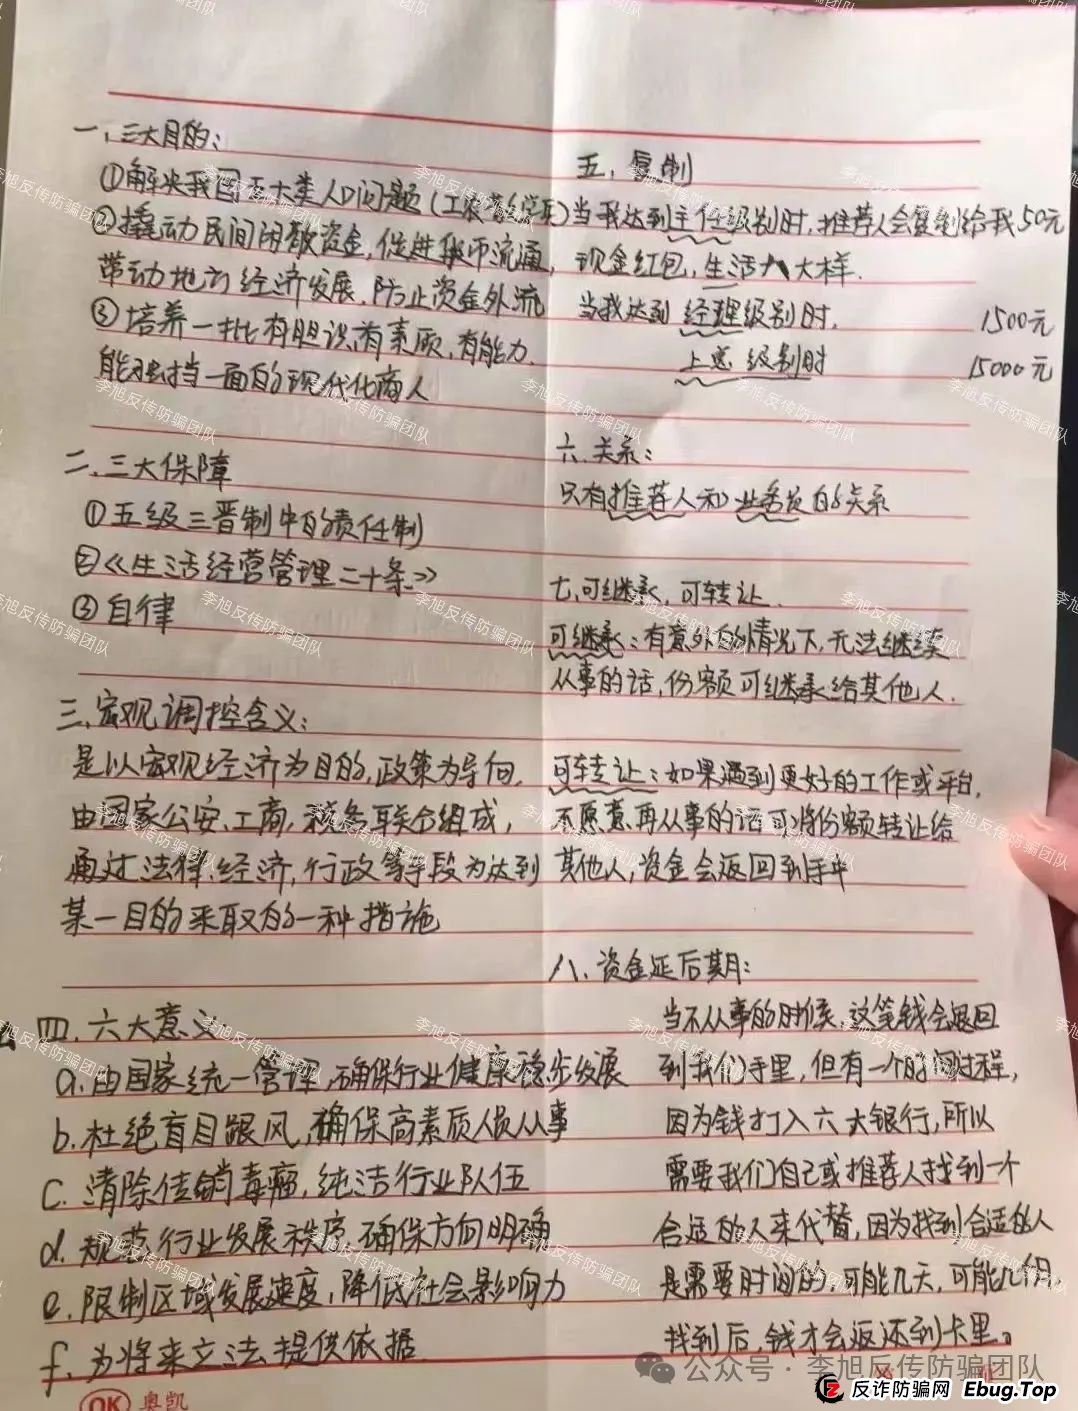 一、三大目的：
①解决我国五大类人口问题（工农
②撬动民间闲散资金，促进货币流通，
带动地方经济发展，防止资金外流
③培养一批有胆识，有素质，有能力，
能独挡一面的现代化商人
二、三大保障
①五级三晋制中的责任制
②《生活经营管理二十条》
③自律
三、宏观调控含义：
是以宏观经济为目的，政策为导向，
由国家公安、工商，税务联合组成，
通过法律、经济，行政等手段为达到
某一目的采取的一种措施
四、六大意义
a.由国家统一管理，确保行业健康稳步发展
b.杜绝盲目跟风，确保高素质人员从事
c.清除传销毒瘤，纯洁行业队伍
d.规范行业发展秩序，确保方向明确
e.限制区域发展速度，降低社会影响力
f.为将来立法提供依据
五、复制
当我达到主任级别时，推荐人会复制给我50元
现金红包，生活大样.
当我达到经理级别时， 1500元
上总级别时 15000元
六、关系：
只有推荐人和业务员的关系
七、可继承，可转让.
可继承：有意外的情况下，无法继续
从事的话，份额可继承给其他人.
可转让：如果遇到更好的工作或平台，
不愿意再从事的话可将份额转让给
其他人，资金会返回到手中
八、资金延后期：
当不从事的时候，这笔钱会退回
到我们手里，但有一个时间过程，
因为钱打入六大银行，所以
需要我们自己或推荐人找到一个
合适的人来代替，因为找到合适的人
是需要时间的，可能几天，可能几个月，
找到后，钱才会返还到卡里。
OK 奥凯
公众号·李旭反传防骗团队
反诈防骗网 Ebug.Top
李旭反传防骗团队